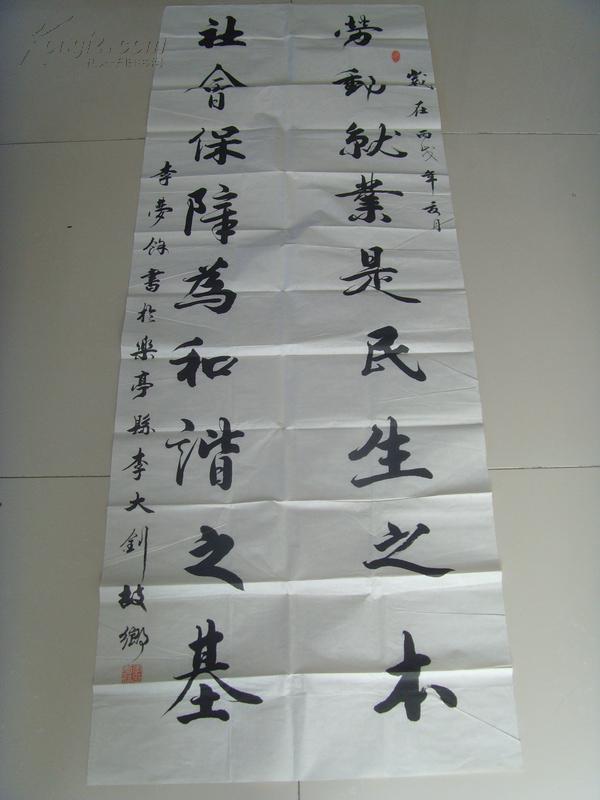 歲在丙戌年亥月
勞動就業是民生之本
社會保障為和諧之基
李夢餘書於樂亭縣李大釗故鄉